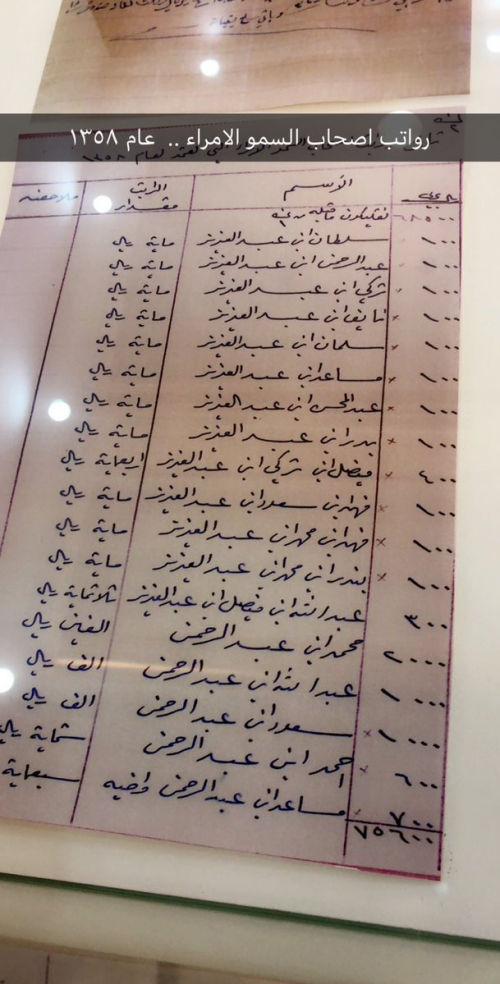 رواتب اصحاب السمو الامراء .. عام ١٣٥٨
ريال الاسم مقدار الراتب ملاحظه
٦٨٥٠٠
١٠٠ سلطان ابن عبد العزيز ماية ريال
١٠٠ عبد الرحمن ابن عبد العزيز ماية ريال
١٠٠ تركي ابن عبد العزيز ماية ريال
١٠٠ نايف ابن عبد العزيز ماية ريال
١٠٠ سلمان ابن عبد العزيز ماية ريال
١٠٠ مساعد ابن عبد العزيز ماية ريال
١٠٠ عبد المحسن ابن عبد العزيز ماية ريال
١٠٠ بندر ابن عبد العزيز ماية ريال
٤٠٠ فيصل ابن تركي ابن عبد العزيز اربعماية ريال
١٠٠ فهد ابن سعود ابن عبد العزيز ماية ريال
١٠٠ فهد ابن محمد ابن عبد العزيز ماية ريال
١٠٠ بندر ابن محمد ابن عبد العزيز ماية ريال
٣٠٠ عبد الله ابن فيصل ابن عبد العزيز ثلاثماية ريال
٢٠٠٠ محمد ابن عبد الرحمن الفين ريال
١٠٠٠ عبد الله ابن عبد الرحمن الف ريال
١٠٠٠ سعود ابن عبد الرحمن الف ريال
٦٠٠ احمد ابن عبد الرحمن ستماية ريال
٧٠٠ مساعد ابن عبد الرحمن واخيه سبعماية
٧٥٦٠٠